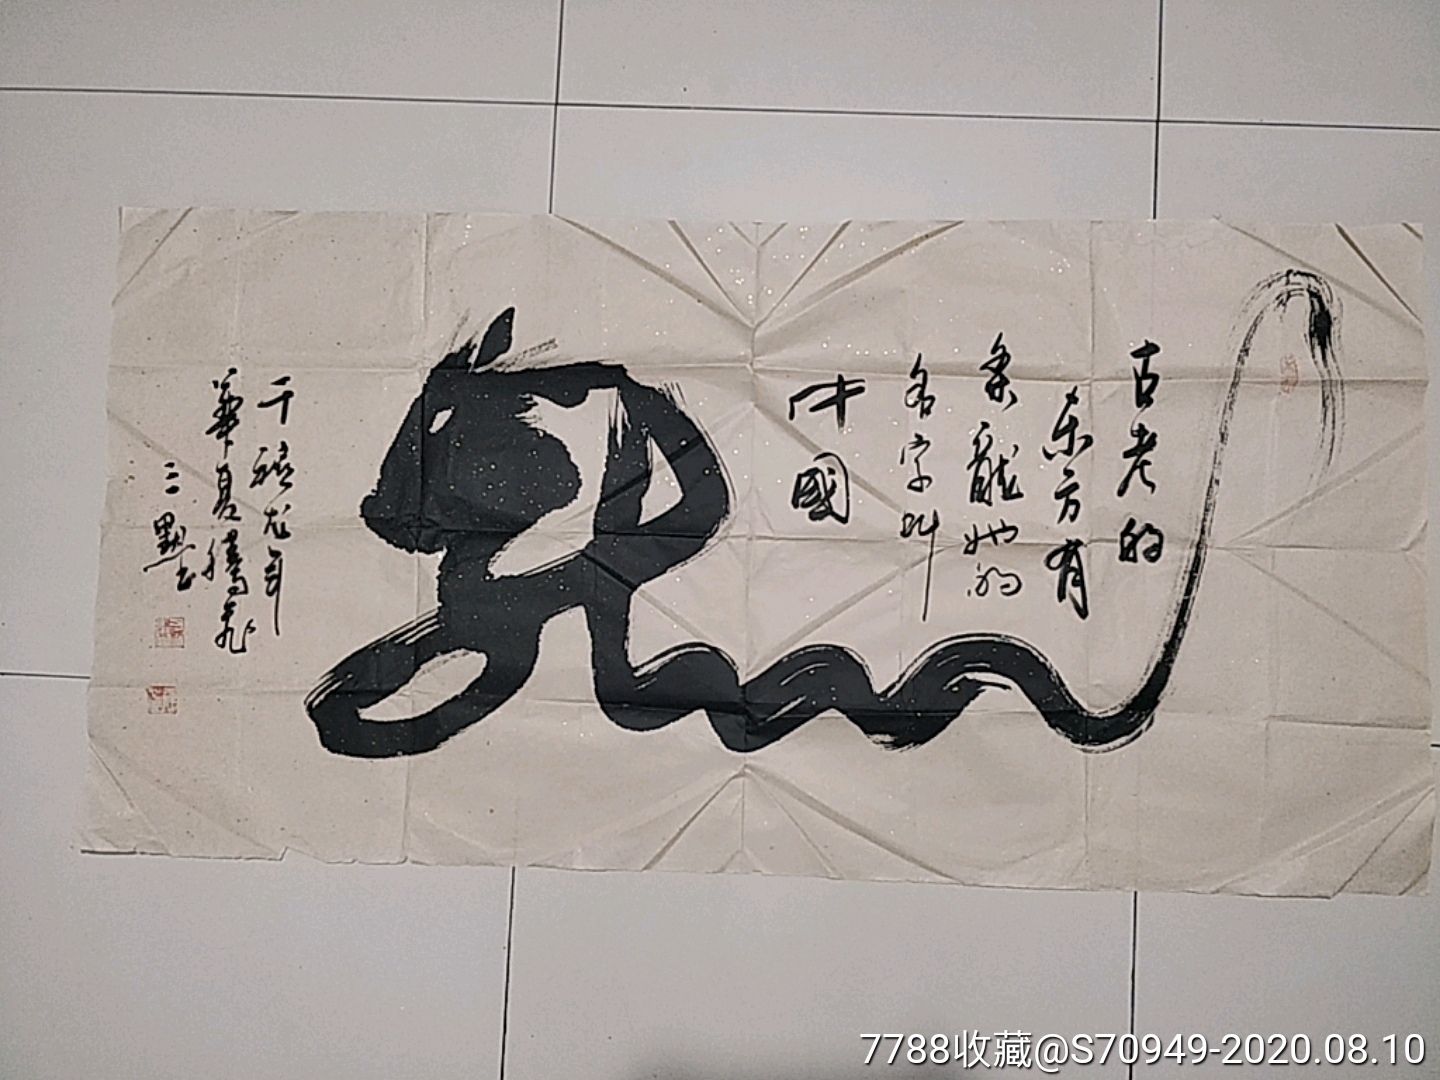 古老的
东方有
条龍她的
名字叫
中國
千禧龙年
華夏騰飛
三點
7788收藏@S70949-2020.08.10